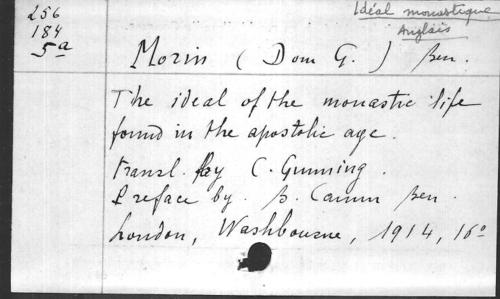 256
184
5a
Idéal monastique
Anglais
Morin (Dom G.) Ben.
The ideal of the monastic life
found in the apostolic age.
transl. by C. Gunning.
Preface by. B. Camm Ben.
London, Washbourne, 1914, 16°